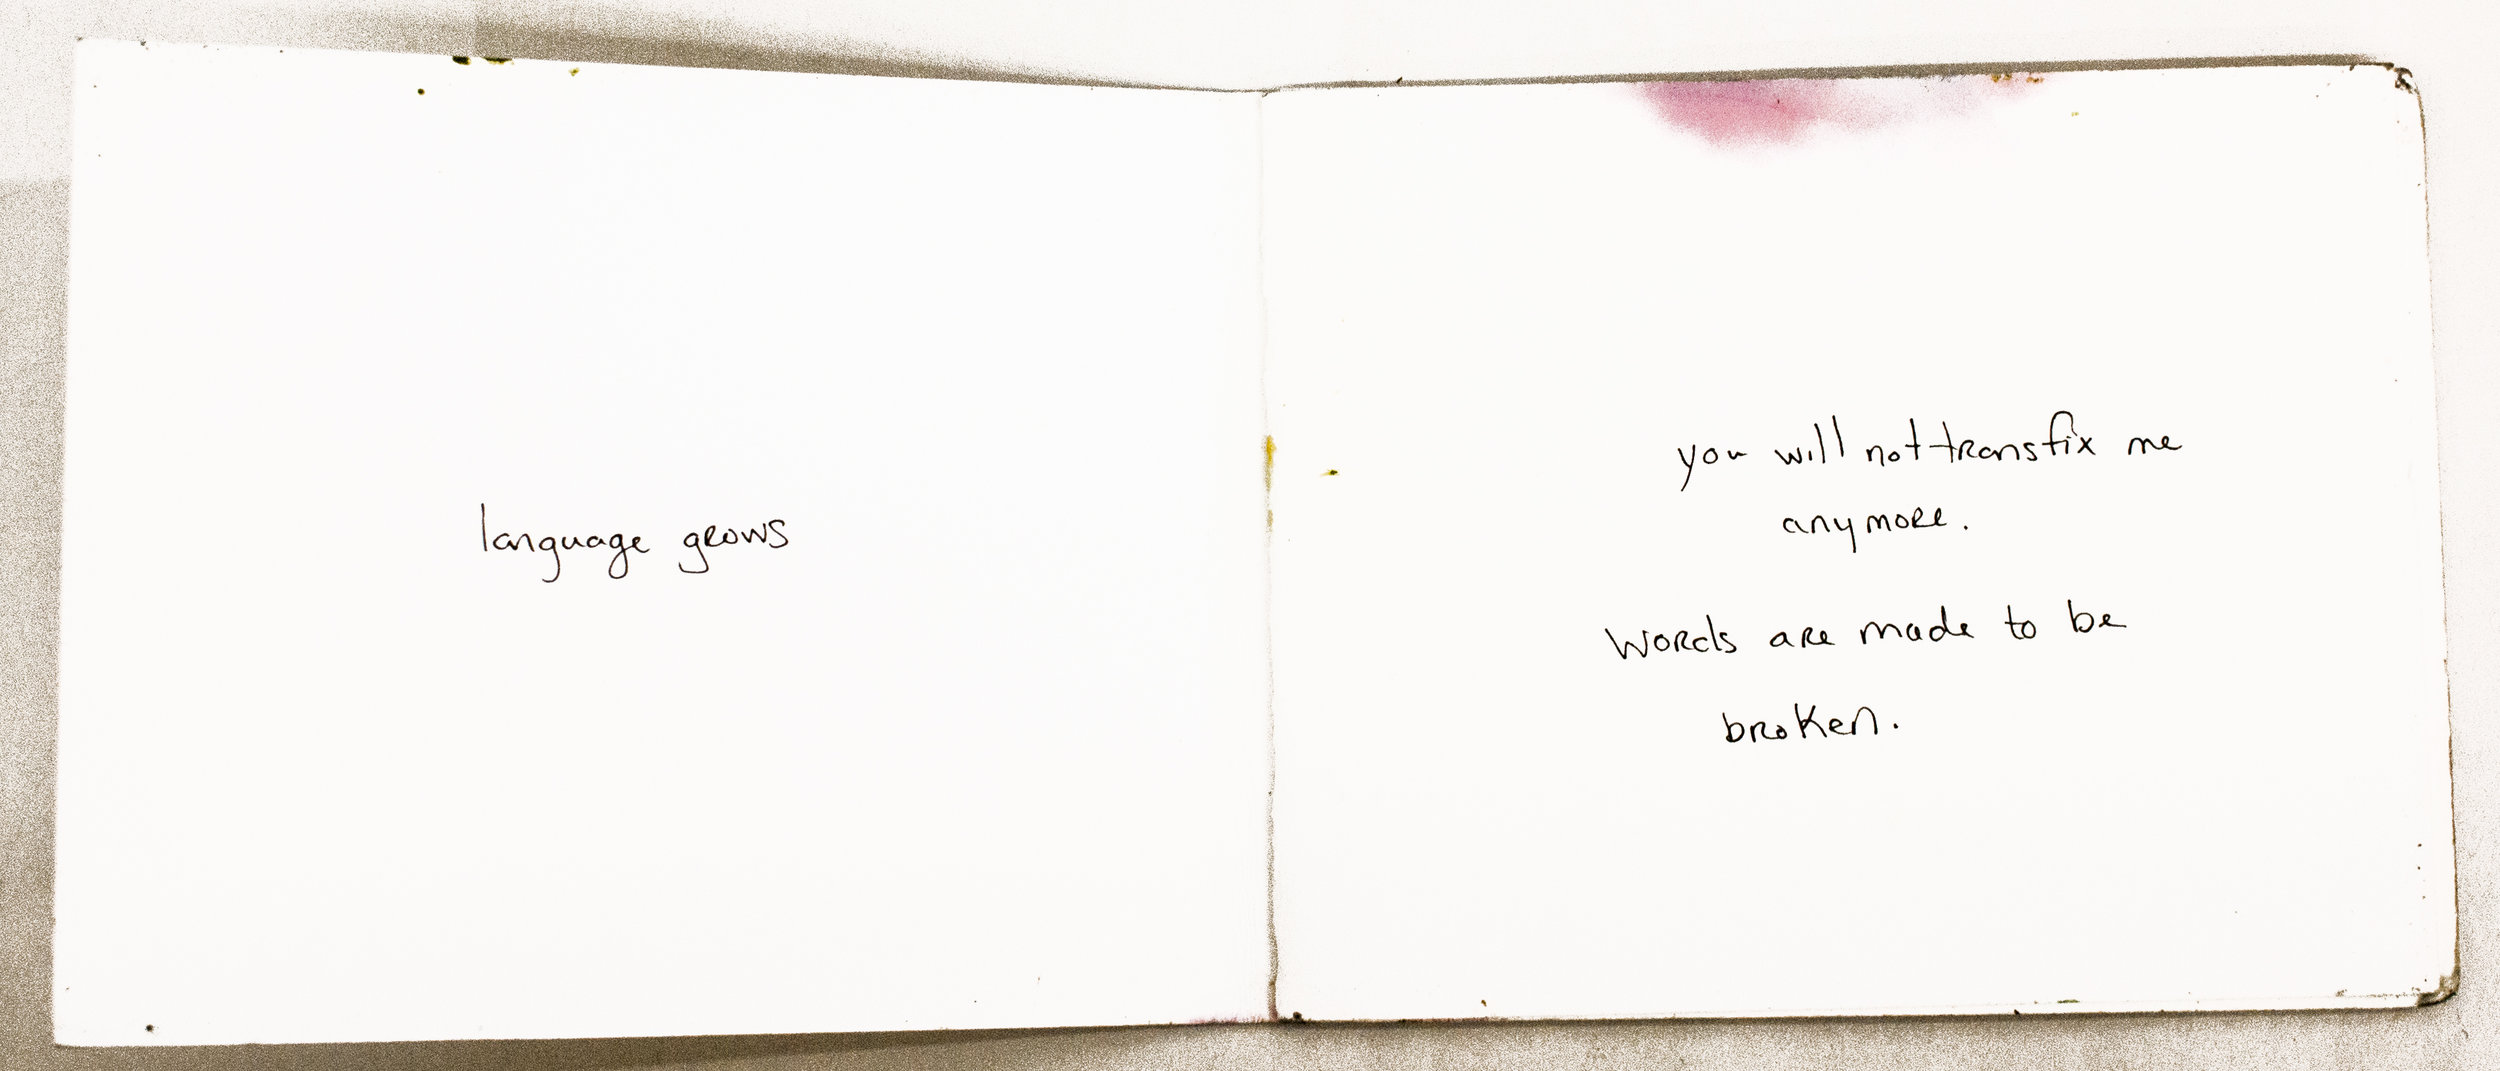 language grows
you will not transfix me
anymore.
Words are made to be
broken.